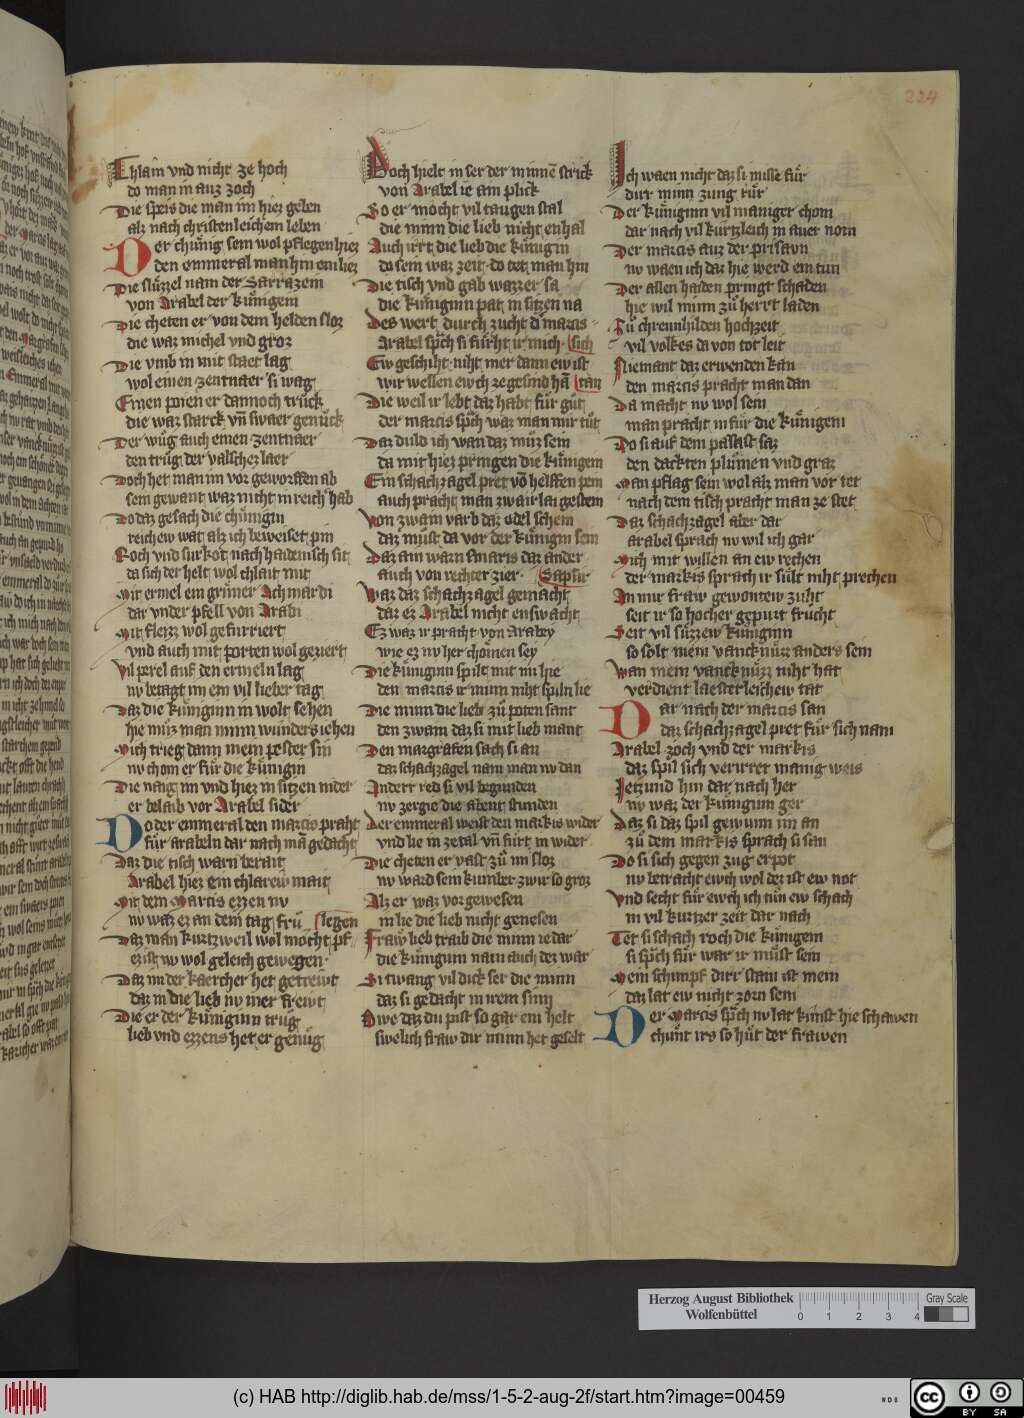 224
Chlain vnd nicht ze hoch
do man in auz zoch
Die speis die man im hiez geben
alz nach christenleichem leben
Der chuͤnig sein wol pflegen hiez
den emmeral man hin ein liez
Die sluͤzzel nam der Sarrazein
von Arabel der kuͤnigein
Die cheten er von dem helden sloz
die waz michel vnd groz
Die vmb in mit staet lag
wol einen zentnaer si wag
Einen poien er dannoch truͤck
die waz starck vn̄ swaer genuͤck
Der wuͤg auch einen zentnaer
den truͤg der valschez laer
Doch het man im vor geworffen ab
sein gewant waz nicht in reich hab
Do daz gesach die chuͤnigin
reichew wat alz ich beweiset pin
Roch vnd surkot nach haidenisch sit
da sich der helt wol chlait mit
Mit ermel ein gruͤner Achmardi
dar vnder pfell von Arabi
Mit flezz wol gefurriert
vnd auch mit porten wol geziert
Vil perel auf den ermeln lag
nv betagt im ein vil lieber tag
Daz die kuͤniginn in wolt sehen
hie muͤz man minn wunders iehen
Mich trieg dann mein pester sin
nv chom er fuͤr die kuͤnigin
Die naig im vnd hiez in sitzen nider
er belaib vor Arabel sider
Do der emmeral den marcis praht
fuͤr arabeln dar nach mā gedacht
Daz die tisch warn berait
Arabel hiez ein chlarew mait
Mit dem Marcis ezzen nv
nv waz ez an dem tag fruͤ legen
Daz man kurtzweil wol mocht pf
ez ist nv wol geleich gewegen
Daz in der kaercher het getrewt
daz in die lieb nv mer frewt
Die er der kuͤniginn truͤg
lieb vnd ezzens het er genuͤg
Doch hielt in ser der minnē strick
von Arabel ie am plick
So er mocht vil taugen stal
die minn die lieb nicht enhal
Auch irrt die lieb die kuͤnigin
do sein waz zeit do tet man hin
Die tisch vnd gab wazzer sa
die kuͤniginn pat in sitzen na
Des wert durch zucht d marcis
Arabel sp̄ch si fuͤrht ir mich sich
Ew geschiht niht mer dann ew ist
wir wellen ewch ze gesind hā tan
Die weil ir lebt daz habt fuͤr guͤt
der marcis sp̄ch waz man mir tuͤt
Daz duld ich wan daz muͤz sein
da mit hiez pringen die kuͤnigein
Ein schachzagel pret vō helffen pein
auch pracht man zwair lai gestein
Von zwain varb daz edel schein
daz muͤst da vor der kuͤnigin sein
Daz ain warn smaris daz ander
auch von rechter zier Saphir
Waz daz schachzagel gemacht
daz ez Arabel nicht enswacht
Ez waz ir pracht von Arabey
wie ez nv her chomen sey
Die kuͤniginn spilt mit im hie
den marcis ir minn niht spiln lie
Die minn die lieb zuͤ poten sant
den zwain daz si mit lieb mant
Den margrafen sach si an
daz schachzagel nam man nv dan
Anderr red si vil begunden
nv zergie die abent stunden
Der emmeral weist den markis wider
vnd lie in ze tal vn̄ fuͤrt in wider
Die cheten er vast zuͤ im sloz
nv ward sein kumber zwir so groz
Alz er waz vor gewesen
in lie die lieb nicht genesen
Fraw lieb traib die minn ie dar
die kuͤnigunn nam auch dez war
Si twang vil dick ser die minn
daz si gedacht in irem sinn
Owe daz du pist so gar ein helt
swelich fraw dir minn het geselt
Ich waen nicht daz si misse fuͤr
durr minn zung ruͤr
Der kuͤniginn vil maniger chom
dar nach vil kurtzleich in auer norn
Der marcis auz der prisavn
nv waen ich daz hie werd ein tun
Der allen haiden pringt schaden
hie wil minn zuͤ herrt laden
Zuͤ chreimhilden hochzeit
vil volkes da von tot leit
Niemant daz erwenden kan
den marcis pracht man dan
Da macht nv wol sein
man pracht in fuͤr die kuͤnigein
Do si auf dem palast saz
den dackten pluͤmen vnd graz
Man pflag sein wol alz man vor tet
nach dem tisch pracht man ze stet
Daz schachzagel aber dar
arabel sprach nv wil ich gar
Mich mit willen an ew rechen
der markis sprach ir suͤlt niht prechen
An mir fraw gewonten zuht
seit ir so hocher gepurt frucht
Seit vil suͤzzew kuͤniginn
so solt mein vancknuͤzz anders sein
Wan mein vancknuͤzz niht hat
verdient laesterleichew tat
Dar nach der marcis san
daz schachzagel pret fuͤr sich nam
Arabel zoch vnd der markis
daz spil sich verirret manig weis
Ietzund hin dar nach her
nv waz der kuͤnigunn ger
Daz si daz spil gewunn im an
zuͤ dem markis sprach si san
Do si sich gegen zug erpot
nv betracht ewch wol dez ist ew not
Vnd secht fuͤr ewch ich tuͤn ew schach
in vil kurtzer zeit dar nach
Tet si schach roch die kuͤnigein
si sp̄ch fuͤr war ir muͤst sein
Mein schimpf dirr stain ist mein
daz lat ew nicht zorn sein
Der Marcis sp̄ch nv lat kunst hie schawen
chunt irs so huͤt der frawen
Herzog August Bibliothek
Wolfenbüttel
0 1 2 3 4
Gray Scale
(c) HAB http://diglib.hab.de/mss/1-5-2-aug-2f/start.htm?image=00459
WDB
CC BY SA